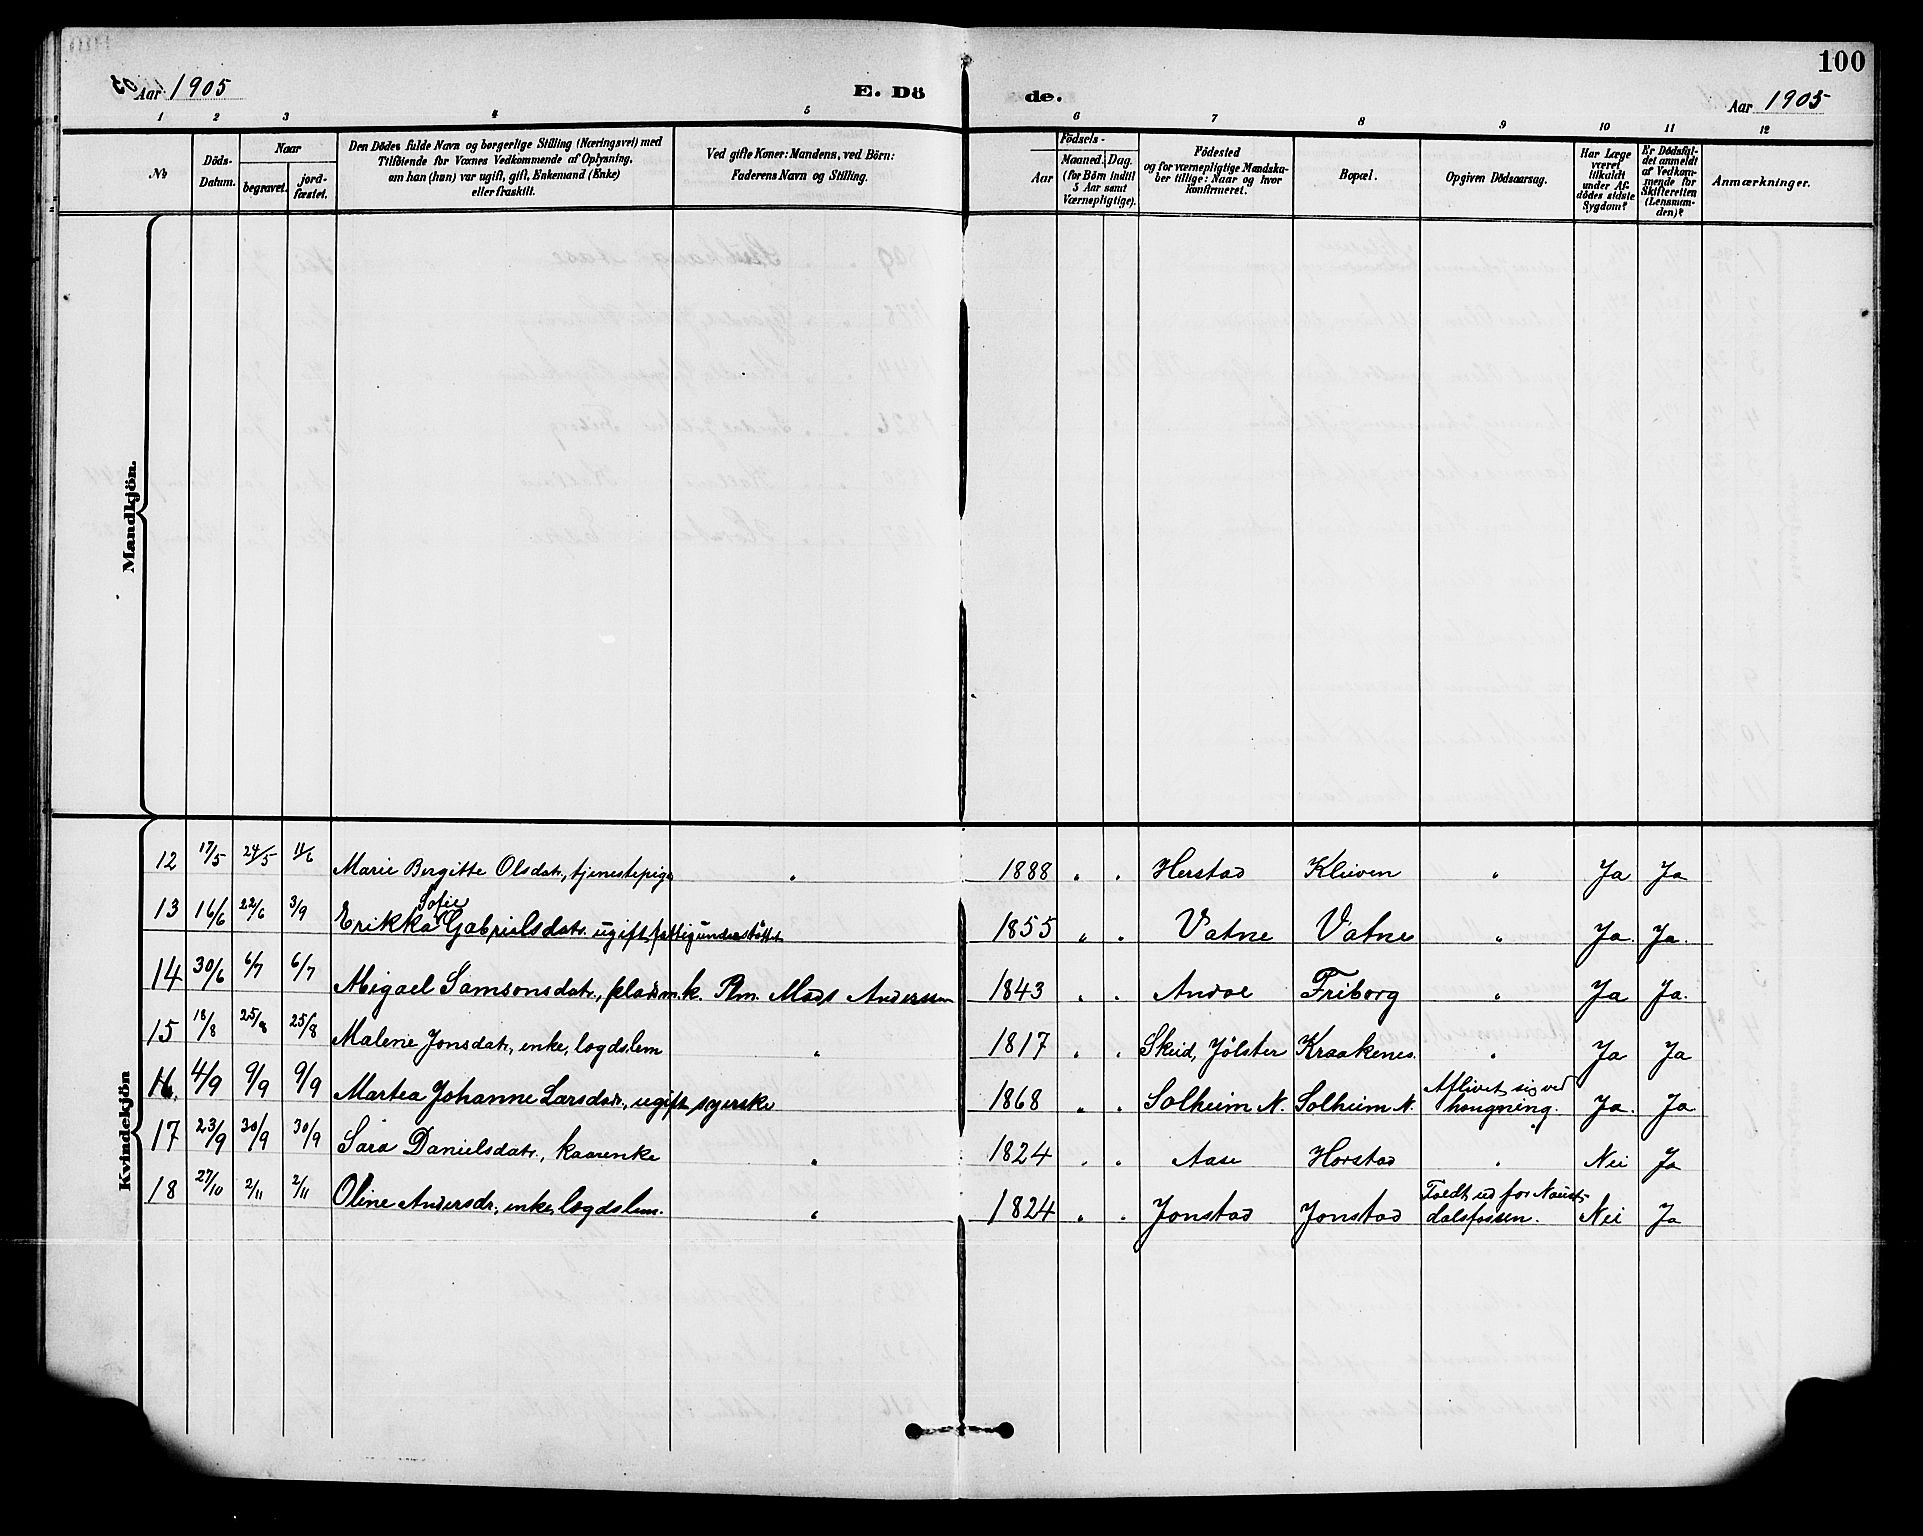 100
Aar 1905
E. Dö de.
Aar 1905
1 2 3 4 5 6 7 8 9 10 11 12
No
Döds-Datum.
Naar
begravet.
jord-fæstet.
Den Dödes fulde Navn og borgerlige Stilling (Næringsvei) med
Tilföiende for Voxnes Vedkommende af Oplysning,
om han (hun) var ugift, gift, Enkemand (Enke)
eller fraskilt.
Ved gifte Koner: Mandens, ved Börn:
Faderens Navn og Stilling.
Födsels-
Aar
Maaned. Dag.
(for Börn indtil
5 Aar samt
Værnepligtige).
Födested
og for værnepligtige Mandska-
ber tillige: Naar og hvor
konfirmeret.
Bopæl.
Opgiven Dödsaarsag.
Har Læge
været
tilkaldt
under Af-
dödes sidste
Sygdom?
Er Dödsfal-
det anmeldt
af Vedkom-
mende for
Skifteretten
(Lensman-
den)?
Anmærkninger.
Mandkjön.
Kvindekjön
12 17/5 24/5 11/6 Marie Bergitte Olsdatr, tjenestepige " 1888 " " Herstad Kleiven " Ja Ja
Sofie
13 16/6 22/6 3/9 Erikka Gabrielsdatr. ugift fattigunderstöttet 1855 " " Vatne Vatne " Ja. Ja.
14 30/6 6/7 6/7 Migael Samsonsdatr, pladsm.k. Plm. Mads Anderssen 1843 " " Andal Friborg " Ja Ja.
15 18/8 25/8 25/8 Malene Jonsdatr, enke, lægdslem " 1817 " " Skeid, Jølster Kraakenes. " Ja Ja
16. 4/9 9/9 9/9 Martea Johanne Larsdatr., ugift syerske 1868 " " Solheim N. Solheim N. Aflivet sig ved
hængning. Ja. Ja
17 23/9 30/9 30/9 Sara Danielsdatr., kaarenke " 1824 " " Aase Horstad " Nei Ja
18 27/10 2/11 2/11 Oline Andersdr., enke, lægdslem. " 1824 " " Jonstad Jonstad Faldt ud for Naust-
dalsfossen. Nei Ja